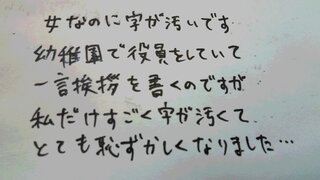 女なのに字が汚いです
幼稚園で役員をしていて
一言挨拶を書くのですが
私だけすごく字が汚くて
とても恥ずかしくなりました…